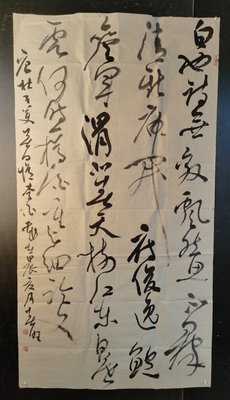 白也詩無敵飄然思不群
清新庾開府俊逸鮑
參軍渭北春天樹江東日暮
雲何時一樽酒重與細論文
唐杜甫春日憶李白